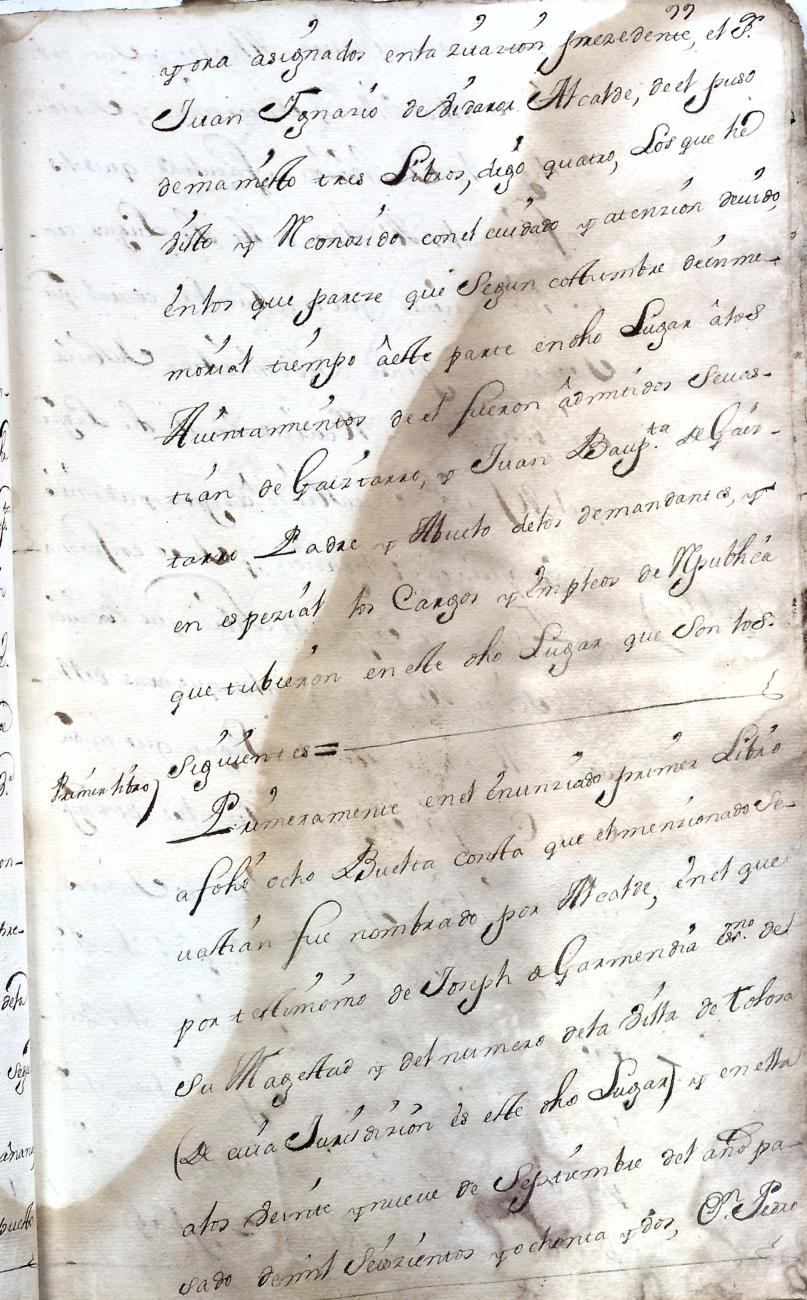 y ora asignados en la zitazion prezedente, el Sr.
Juan Ygnazio de Alcalde, de el puso
de manifiesto tres Libros, digo quatro, Los que hé
visto y Reconozido con el cuidado y atenzion devido,
en los que pareze que Segun costumbre de inme-
morial tiempo â esta parte en dho Lugar â los
Aiuntamientos de el fueron âdmitidos Sevas-
tian de Gaiztarro, y Juan Baupta. de Gaiz-
tarro Padre y Abuelo de los demandantes, y
en espezial los Cargos y Empleos de Republica
que tubieron en este dho Lugar que Son los
Siguientes =
Primer libro
Primeramente en el enunziado primer Libro
a folio ocho Buelta consta que el menzionado Se-
vastian fue nombrado por Alcalde, en el que
por testimonio de Joseph de Garmendia essmo. del
Su Magestad y del numero de la Villa de Tolosa
(de cuia Jurisdizion es este dho Lugar) y en ella
a los veinte y nueve de Septiembre del año pa-
sado de mil Seiszientos y ochenta y dos, Dn. Pedro